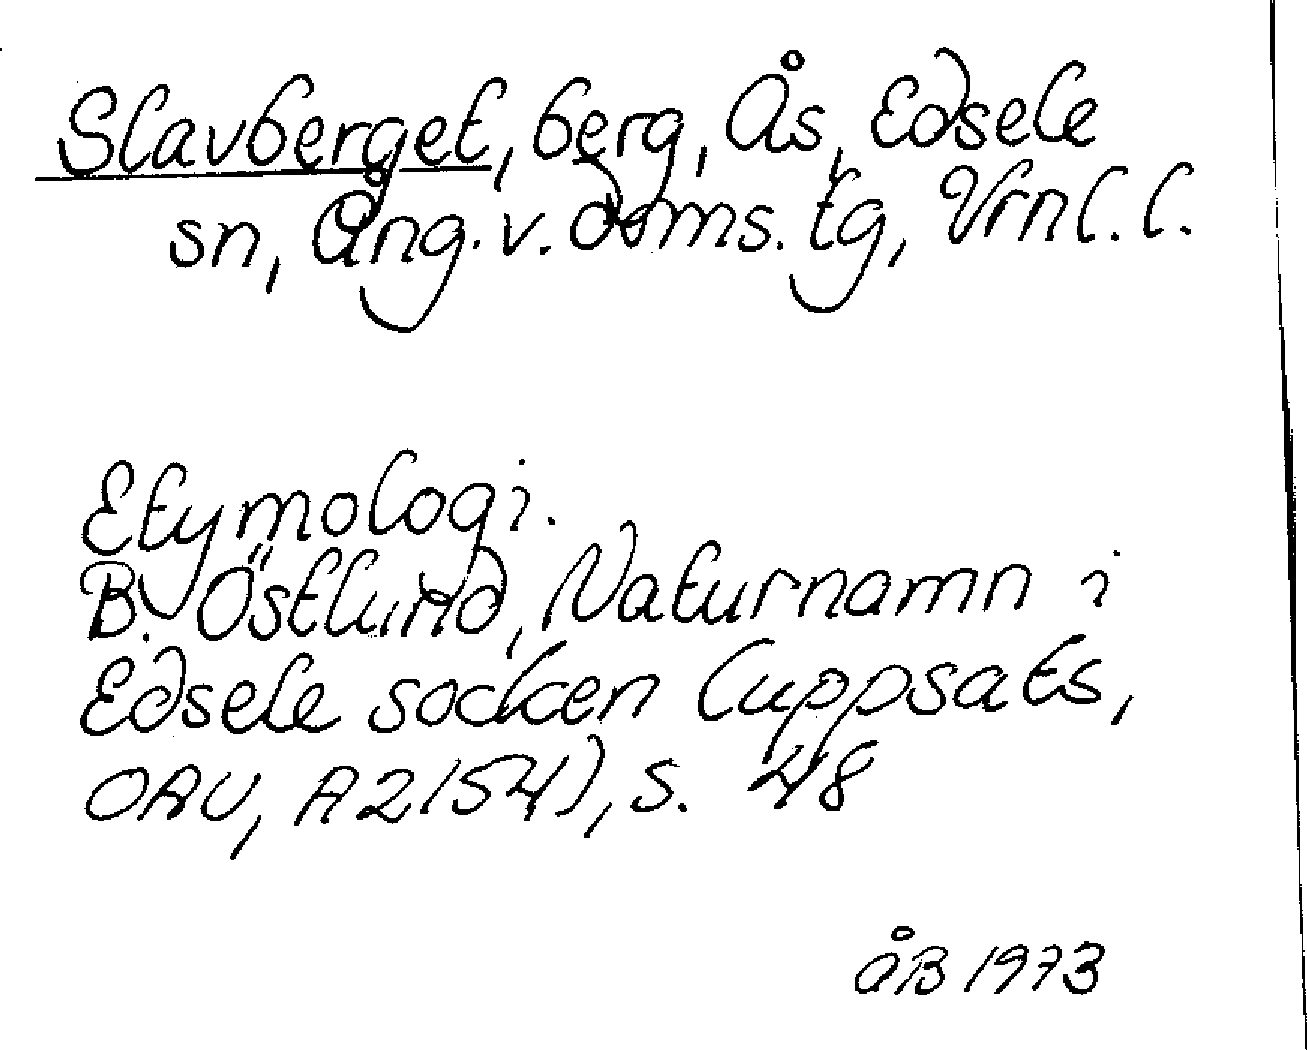 Slavberget, berg, Ås, Edsele
sn, Ång. v. doms. tg, Vrnl. l.
Etymologi.
B. Östlund, Naturnamn i
Edsele socken (uppsats,
OAU, A 2154), s. 48
ÅB 1973